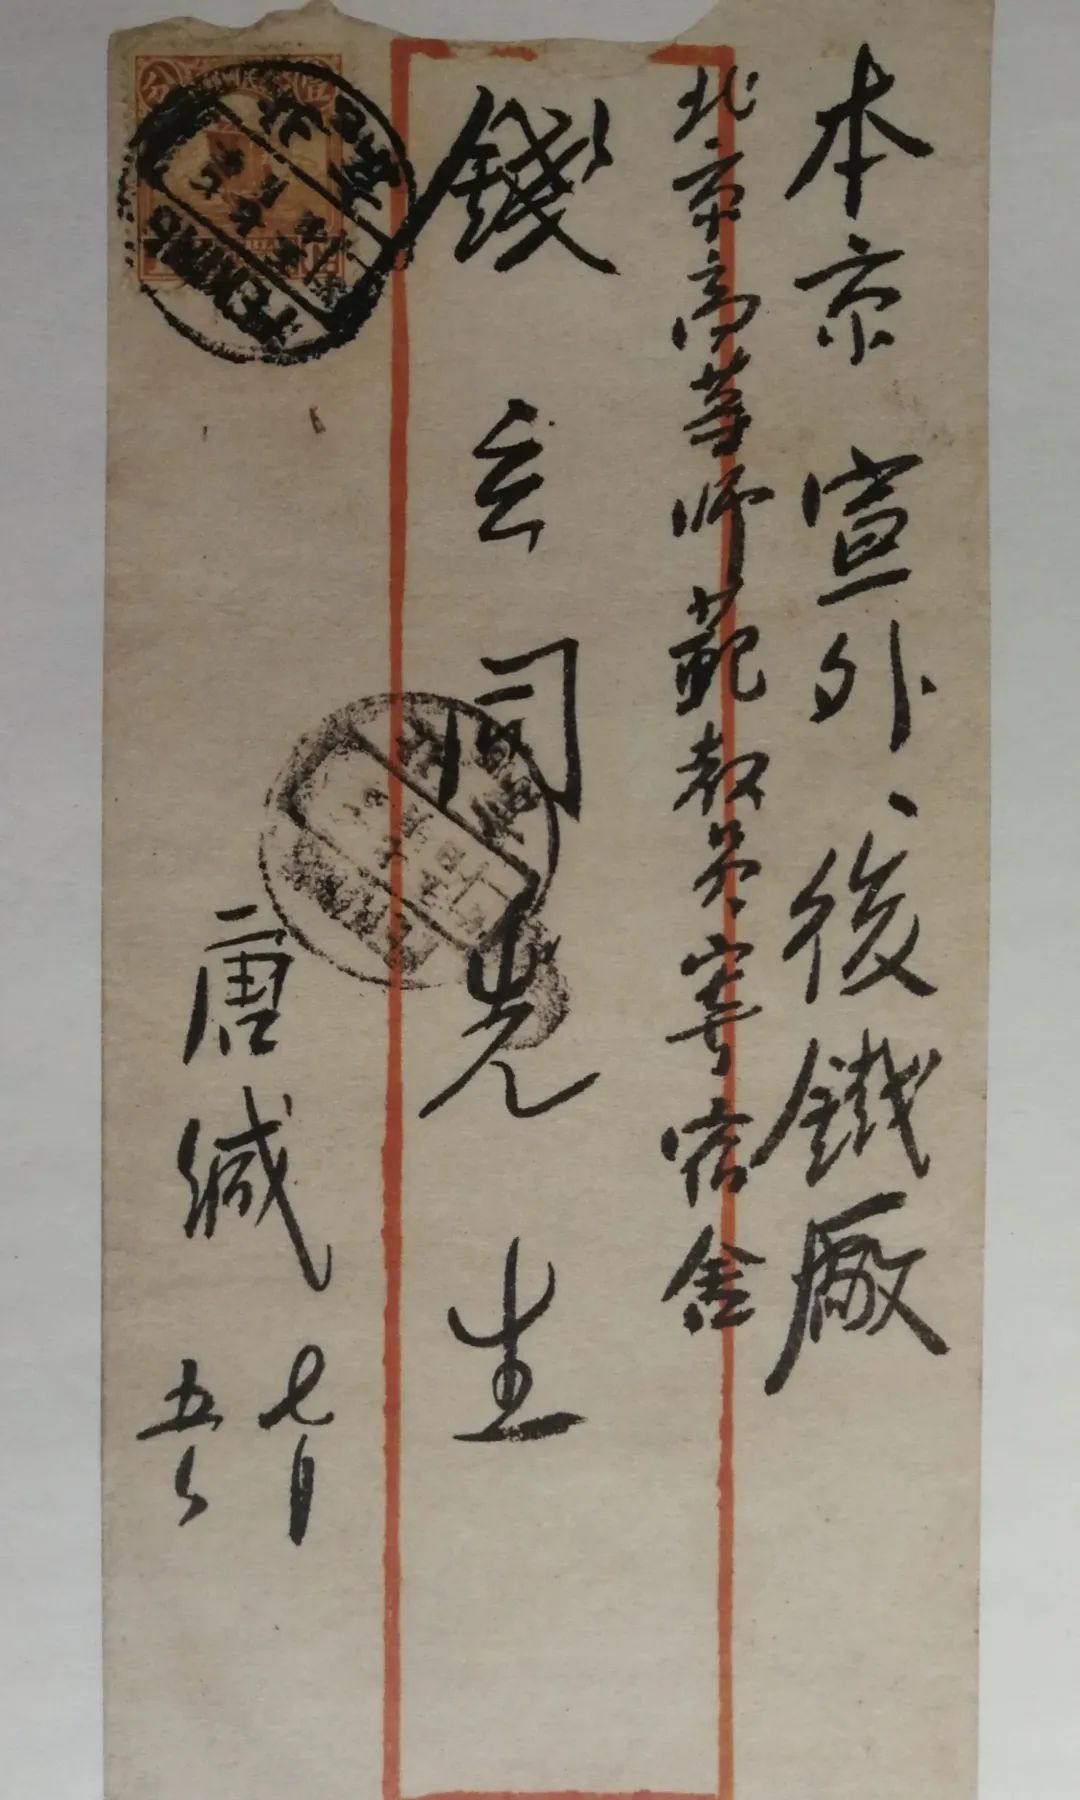 本京宣外、後鐵廠
北京高等師範教員寄宿舍
錢玄同先生
唐緘
七月
五
北京
PEKING